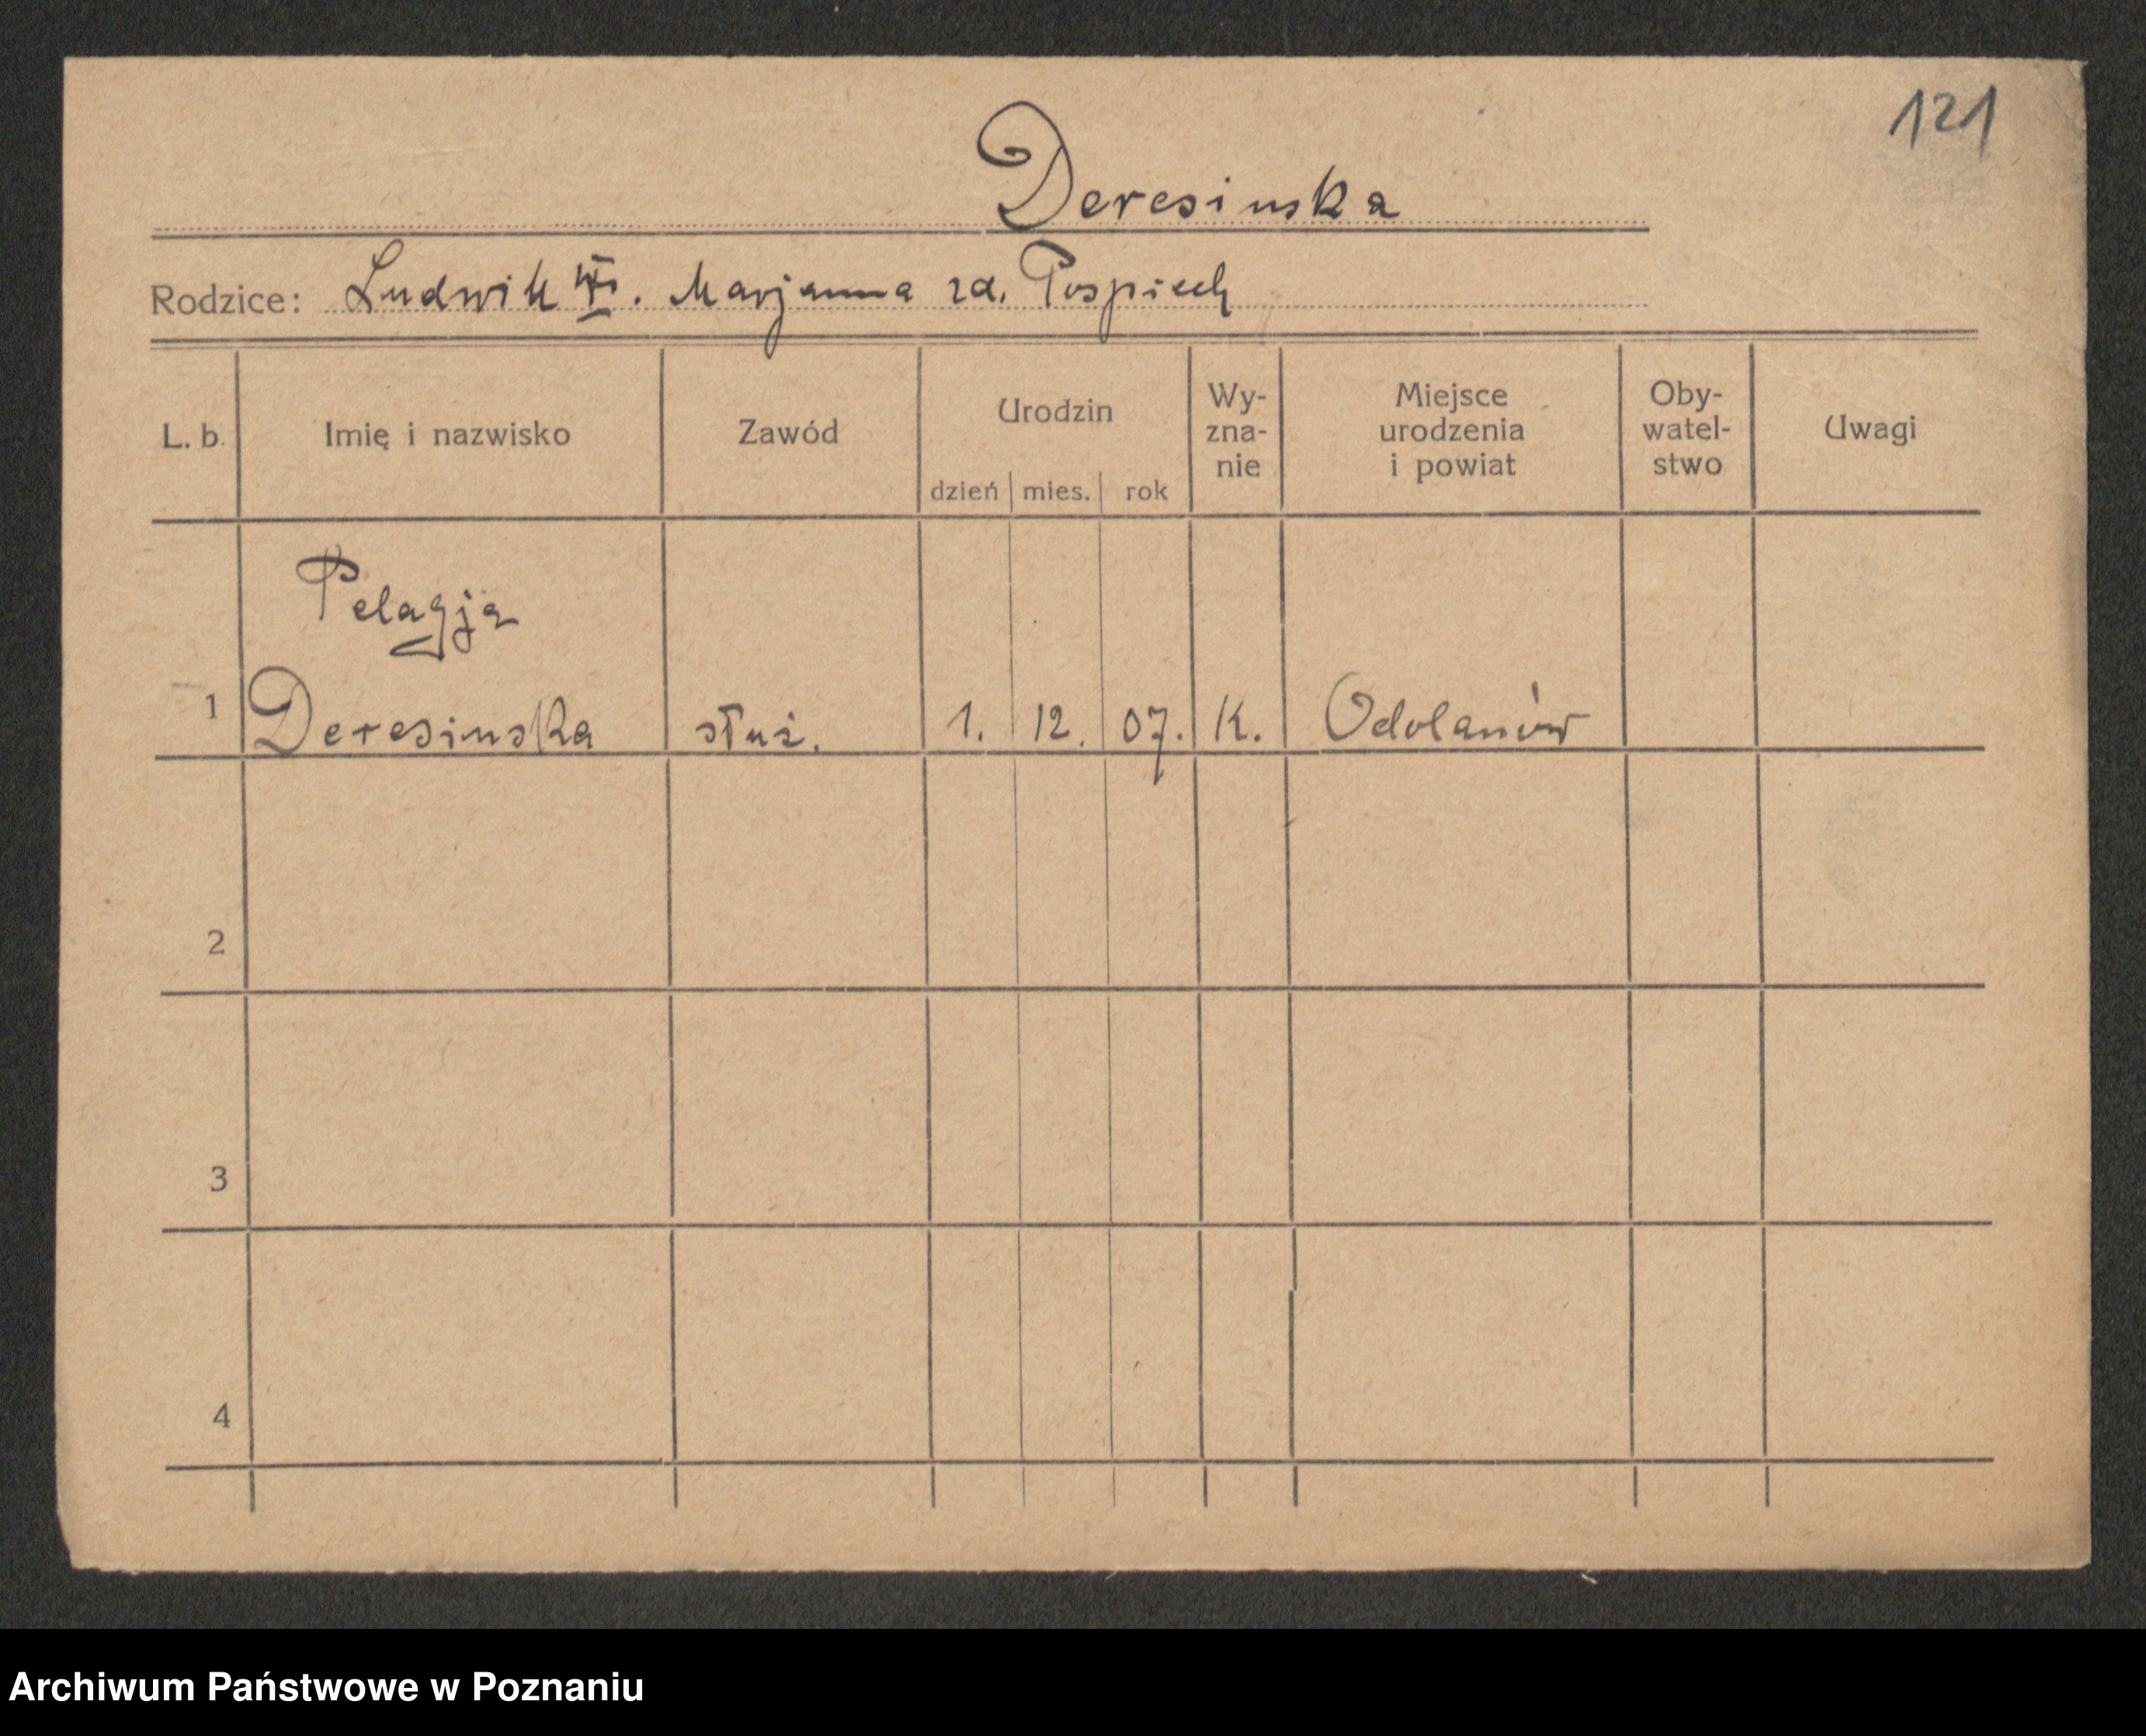 121
Deresinska
Rodzice: Ludwik . Marjanna zd. Pospiech
L. b. Imię i nazwisko Zawód Urodzin Wy- Miejsce Oby- Uwagi
zna- urodzenia watel-
nie i powiat stwo
dzień mies. rok
Pelagja
1 Deresinska służ. 1. 12. 07. K. Odolanów
2
3
4
Archiwum Państwowe w Poznaniu